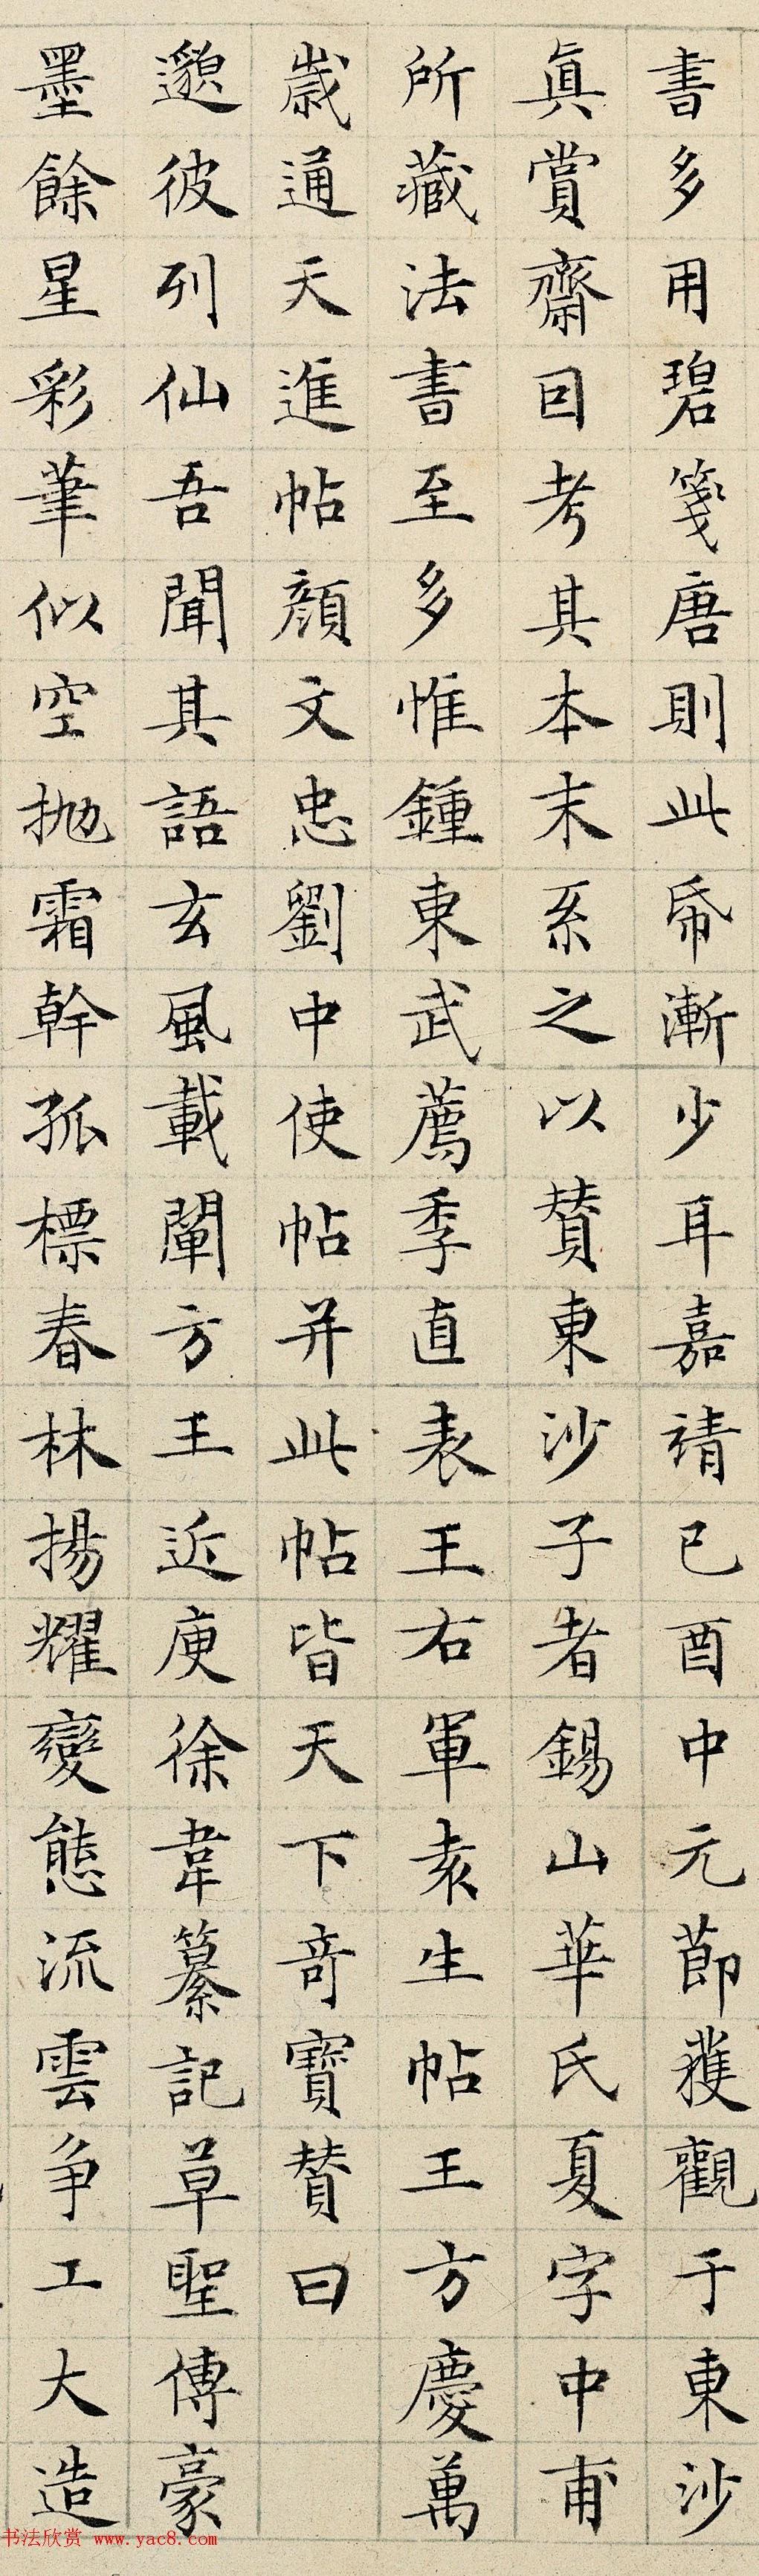 書多用碧箋唐則此帋漸少耳嘉靖己酉中元節獲觀于東沙
真賞齋因考其本末系之以賛東沙子者錫山華氏夏字中甫
所藏法書至多惟鍾東武薦季直表王右軍袁生帖王方慶萬
歲通天進帖顔文忠劉中使帖并此帖皆天下竒寶賛曰
邈彼列仙吾聞其語玄風載闡方王近庾徐韋纂記草聖傳豪
墨餘星彩筆似空抛霜幹孤標春林揚耀變態流雲争工大造
书法欣赏 www.yac8.com